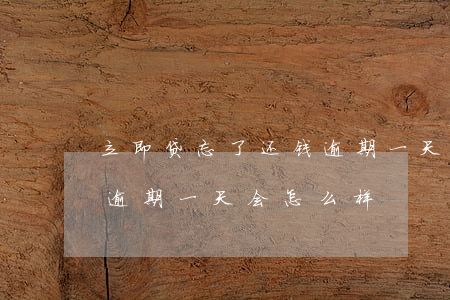 立即贷忘了还钱逾期一天
逾期一天会怎么样